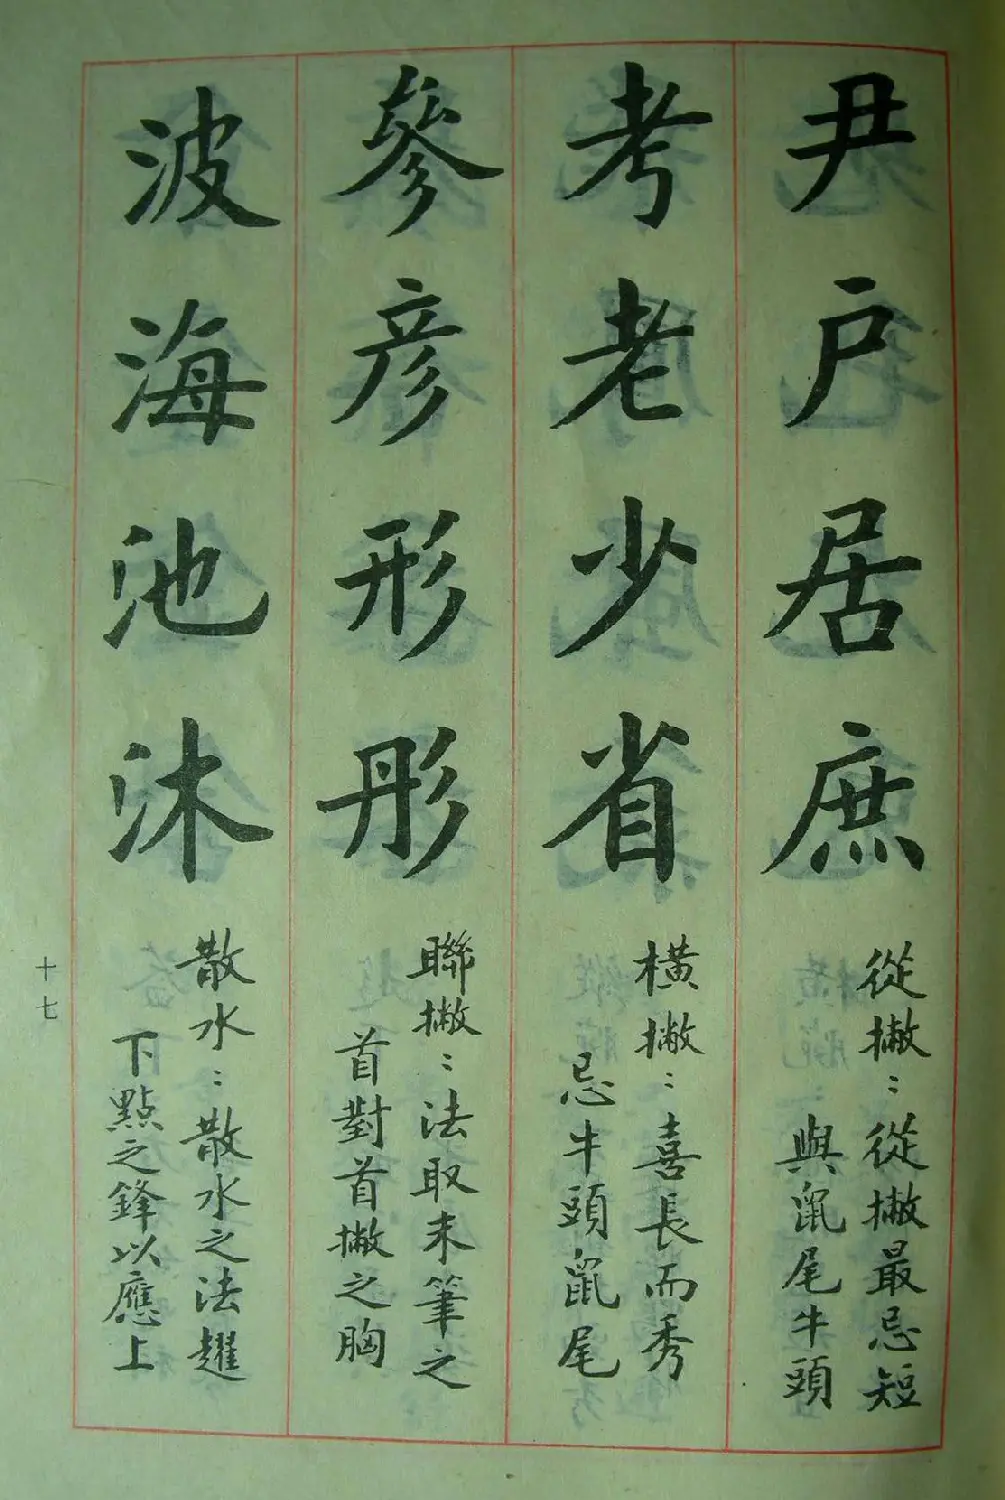 尹戶居庶
從撇：從撇最忌短
與鼠尾牛頭
考老少省
橫撇：喜長而秀
忌牛頭鼠尾
參彥形彤
聯撇：法取末筆之
首對首撇之胸
波海池沐
散水：散水之法趯
下點之鋒以應上
十七